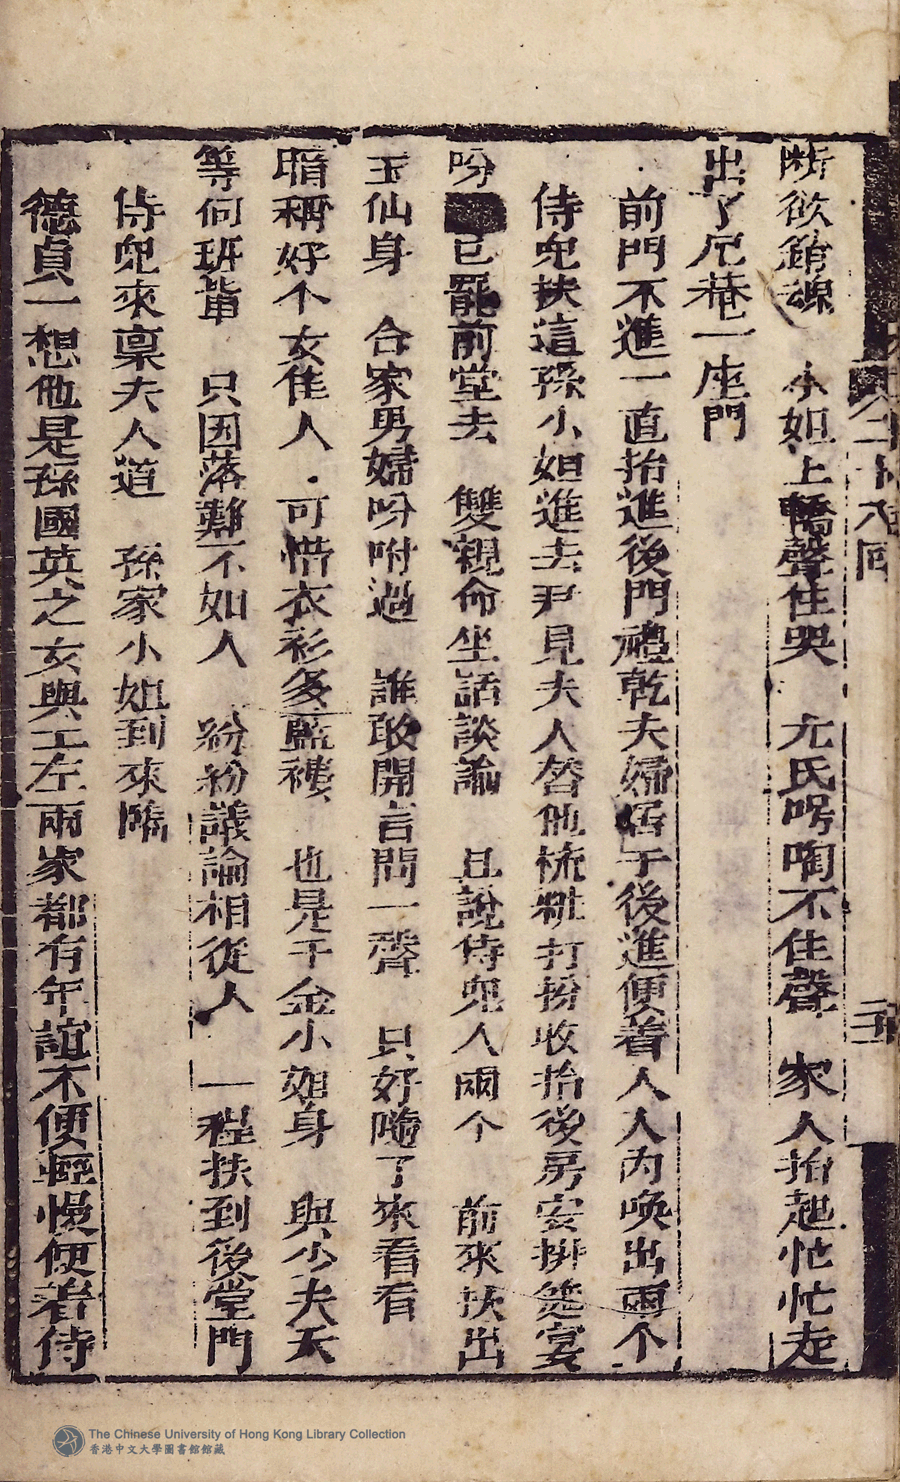 断欲銷魂　小姐上轎聲住哭　尢氏呺啕不住聲　家人抬起忙忙走
出了尼菴一座門
前門不進一直抬進後門禮乾夫婦居于後進便着人人內喚出兩个
侍兒扶這孫小姐進去尹見夫人替他梳粧打扮收拾後房安排筵宴
吩　已罷前堂去　雙親命坐話談論　且說侍兒人兩个　前來扶出
玉仙身　合家男婦吩咐過　誰敢開言問一聲　只好嘥了來看看
暗稱好个女佳人．可惜衣衫多藍褸　也是千金小姐身　與少夫天
等何班軰　只因落難不如人　紛紛議論相從人　一程扶到後堂門
侍兒來稟夫人道　孫家小姐到來臨
德貞一想他是孫國英之女與工左兩家都有年誼不便輕慢便着侍
二十八囘
The Chinese University of Hong Kong Library Collection
香港中文大學圖書館館藏